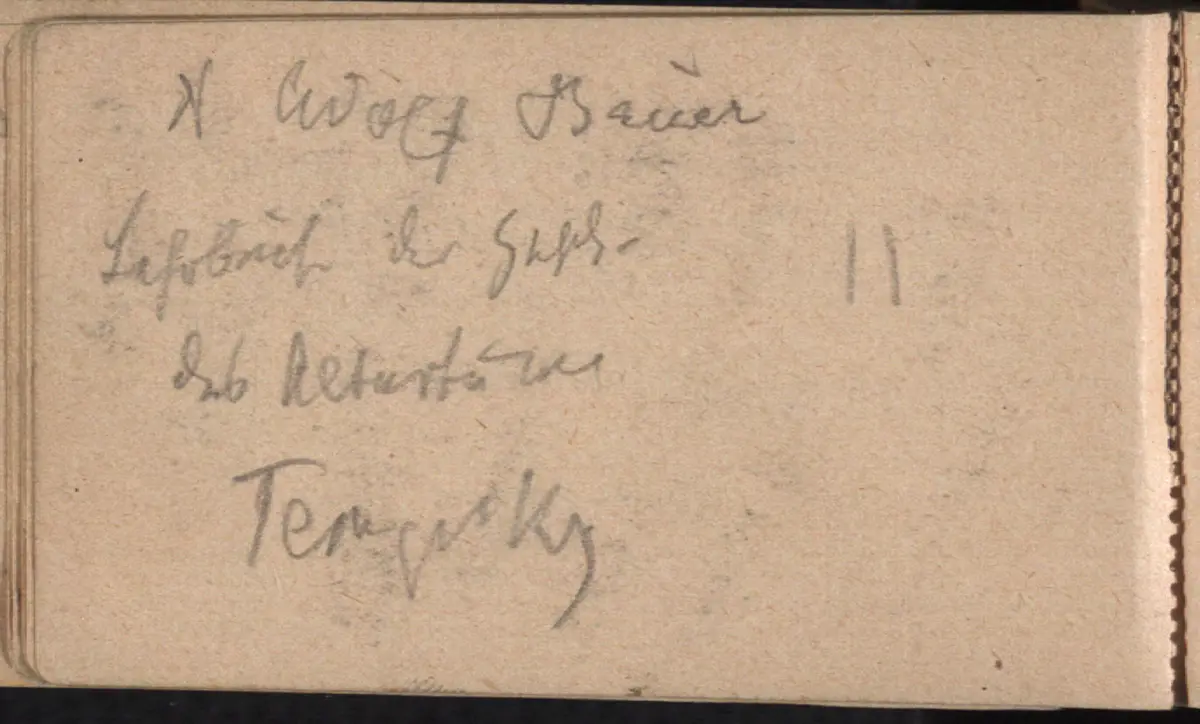 X Adolf Bauer
Lehrbuch der Gesch. II
des Altertums
Tempsky